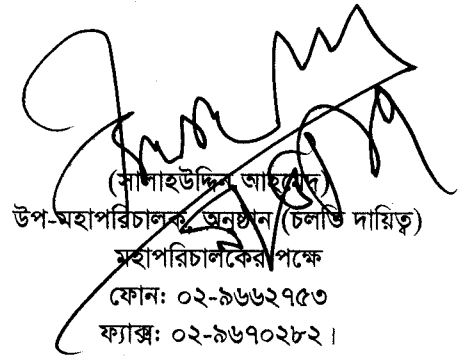 (সালাহউদ্দিন আহমেদ)
উপ-মহাপরিচালক, অনুষ্ঠান (চলতি দায়িত্ব)
মহাপরিচালকের পক্ষে
ফোন: ০২-৯৬৬২৭৫৩
ফ্যাক্স: ০২-৯৬৭০২৮২।